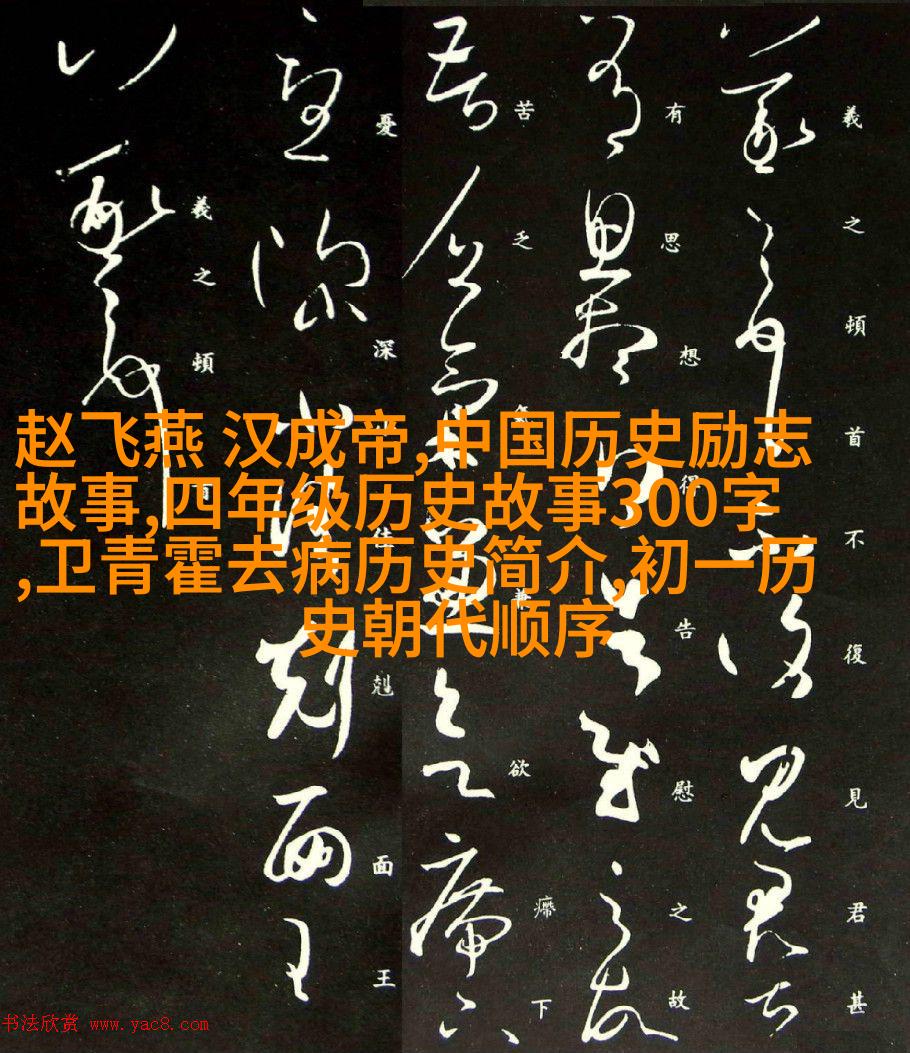 羲之頓首不復見君甚
有思想得告慰之故
苦乏氣兼欲㿃下
憂深佳剋面王
羲之頓首
赵飞燕 汉成帝,中国历史励志
故事,四年级历史故事300字
,卫青霍去病历史简介,初一历
史朝代顺序
书法欣赏 www.yac8.com